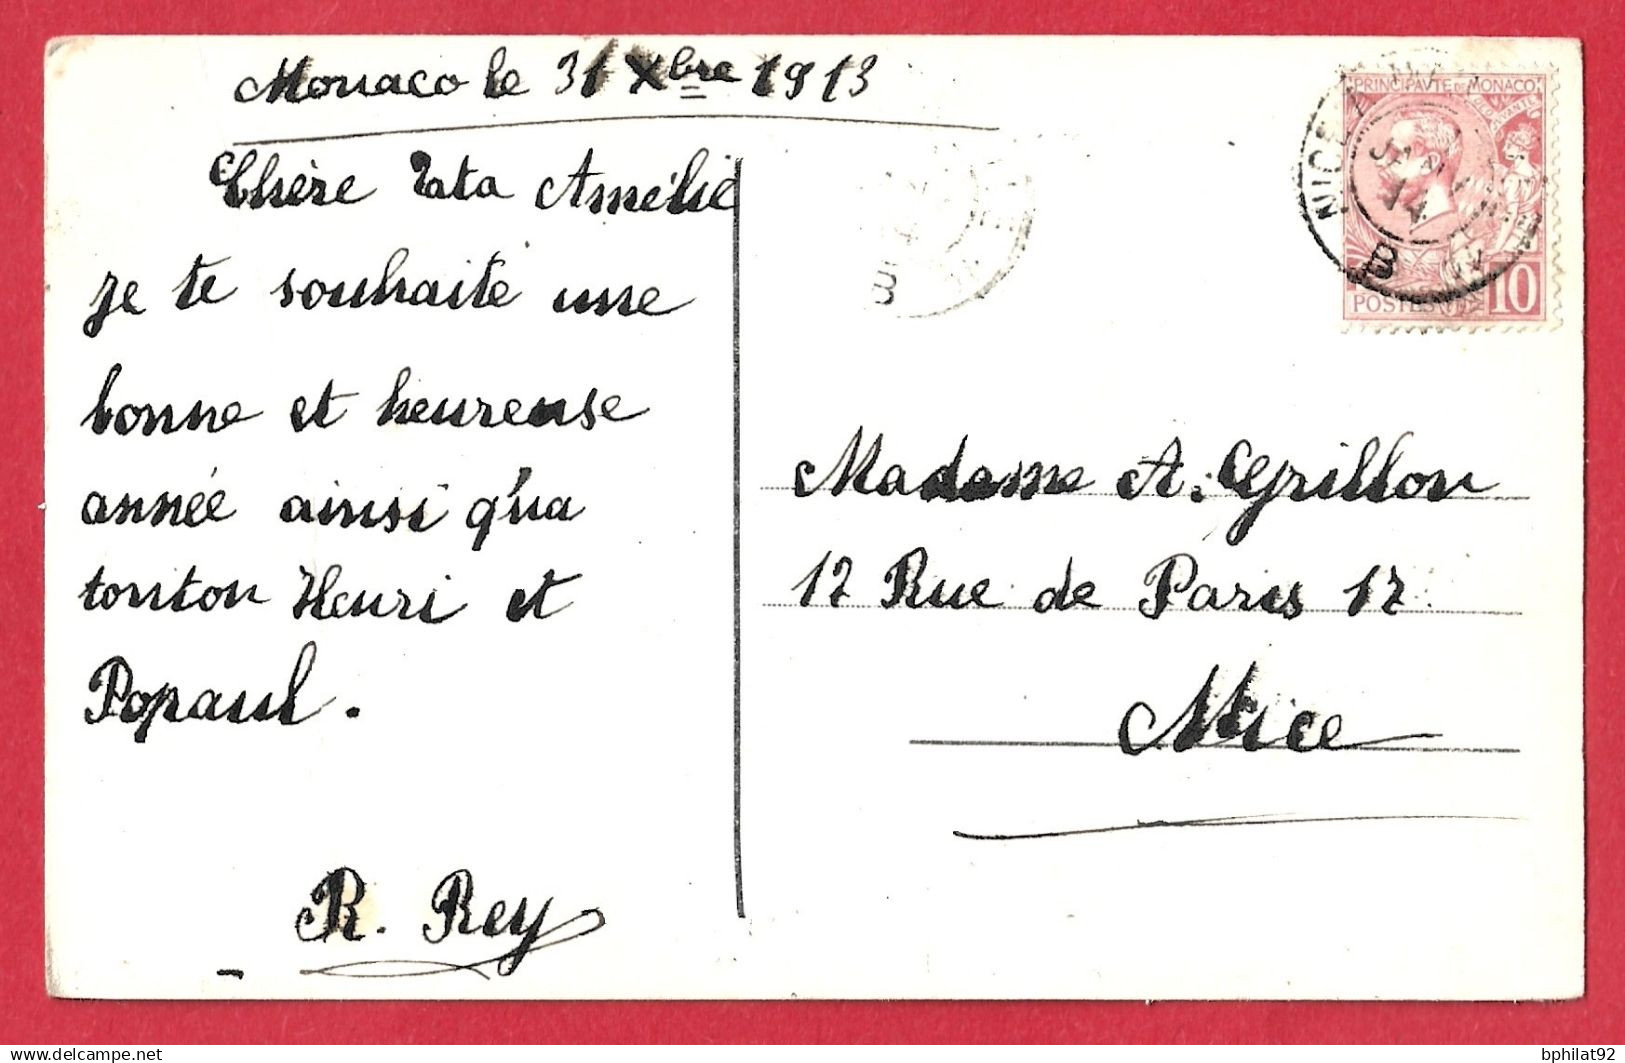 Monaco le 31 Xbre 1913
Chère Tata Amélie
je te souhaite une
bonne et heureuse
année ainsi q'ua
tonton Henri et
Popaul.
R. Rey
PRINCIPAVTE DE MONACO
NICE
JANV
14
B
POSTES
10
B
Madame A. Grillon
17 Rue de Paris 17
Nice
delcampe.net
bphilat92